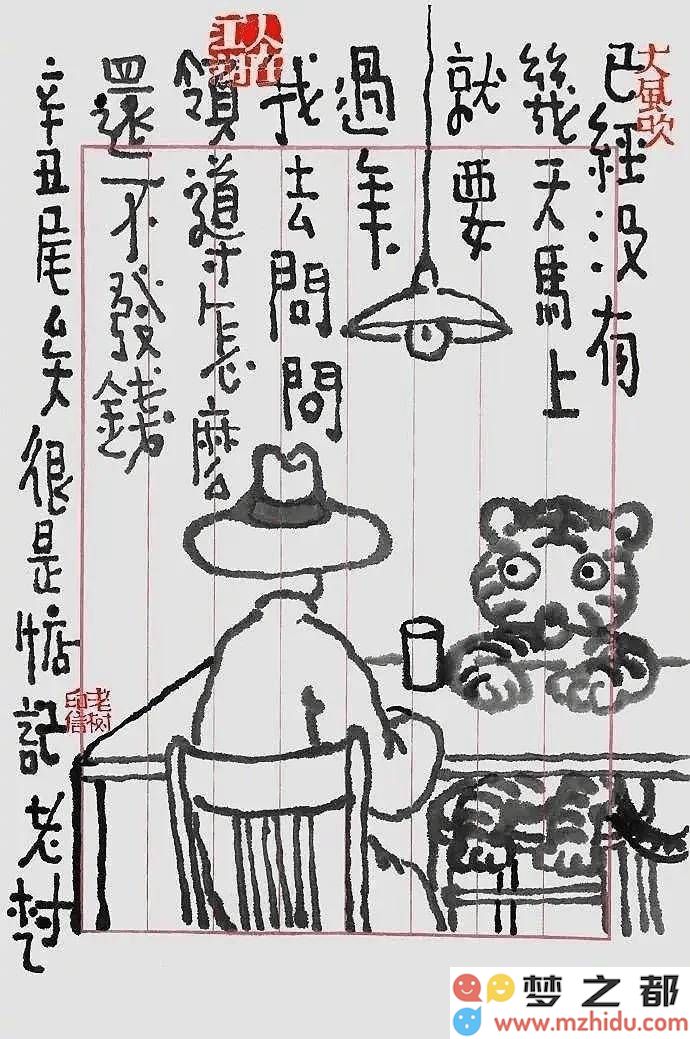 大風吹
已經没有
幾天馬上
就要
過年
我去問問
領導怎麼
還不發錢
辛丑尾矣很是惦記老树
人在江湖
老树印信
梦之都
www.mzhidu.com